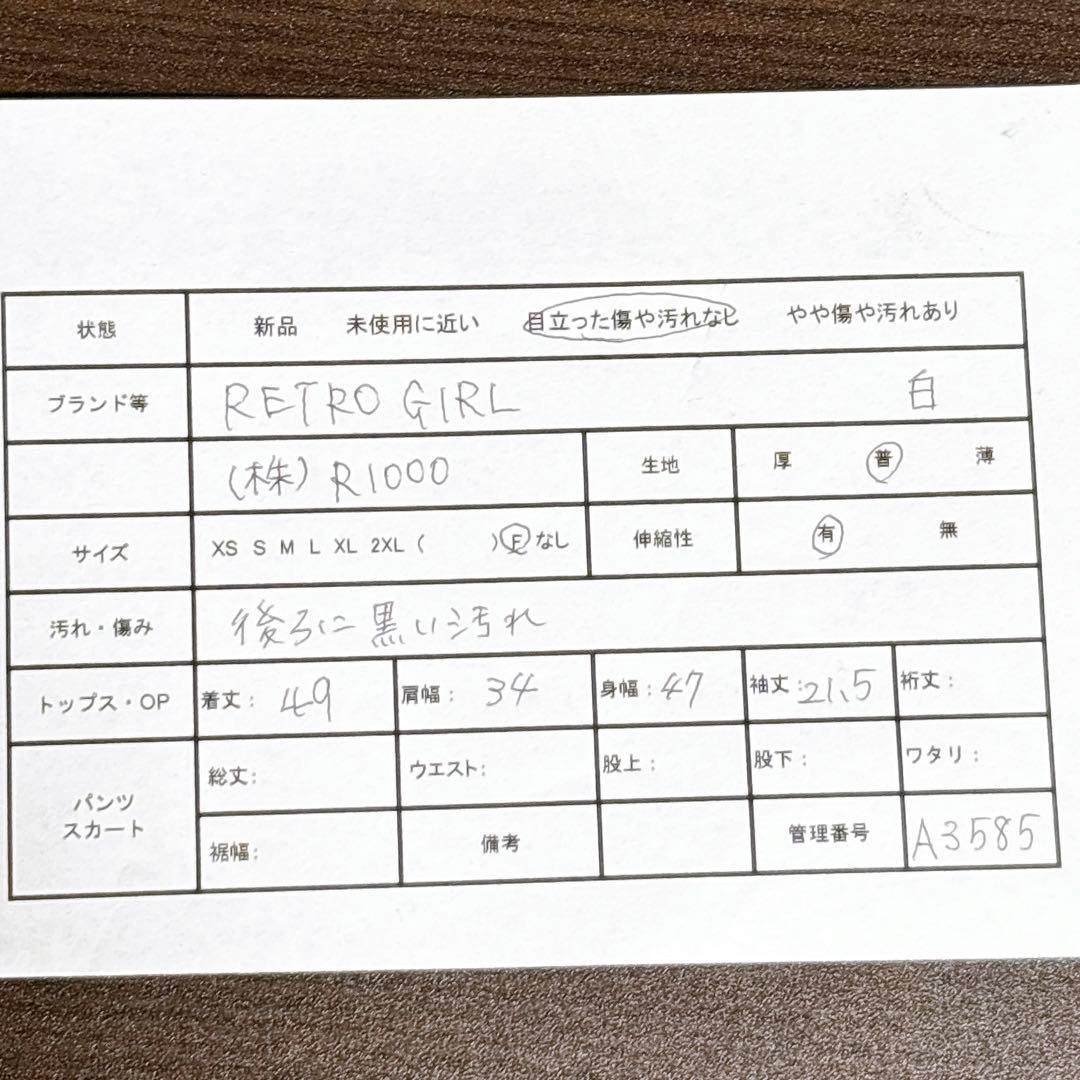 状態 新品 未使用に近い 目立った傷や汚れなし やや傷や汚れあり
ブランド等 RETRO GIRL 白
(株) R1000 生地 厚 普 薄
サイズ XS S M L XL 2XL ( ) F なし 伸縮性 有 無
汚れ・傷み 後ろに黒い汚れ
トップス・OP 着丈: 49 肩幅: 34 身幅: 47 袖丈: 21.5 裄丈:
パンツ スカート 総丈: ウエスト: 股上: 股下: ワタリ:
裾幅: 備考 管理番号 A3585